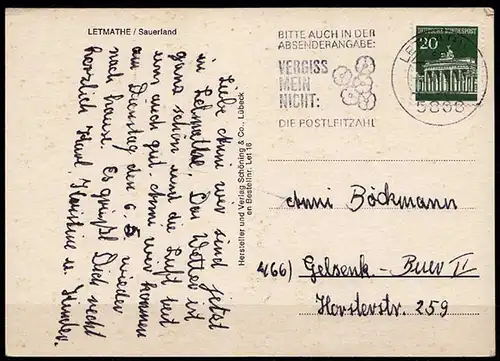 LETMATHE / Sauerland
Liebe Anni wir sind jetzt
in Letmathe. Das Wetter ist
ganz schön und die Luft tut
uns auch gut. Anni wir kommen
am Dienstag den 6. 5 wieder
nach hause. Es grüßt Dich recht
herzlich Karl, Christine u. Kinder.
Hersteller und Verlag Schöning & Co., Lübeck
en Bestellnr. Let 16
BITTE AUCH IN DER
ABSENDERANGABE:
VERGISS
MEIN
NICHT:
DIE POSTLEITZAHL
DEUTSCHE BUNDESPOST
20
LET
Anni Böckmann
(466) Gelsenk.-Buer II
Horsterstr. 259